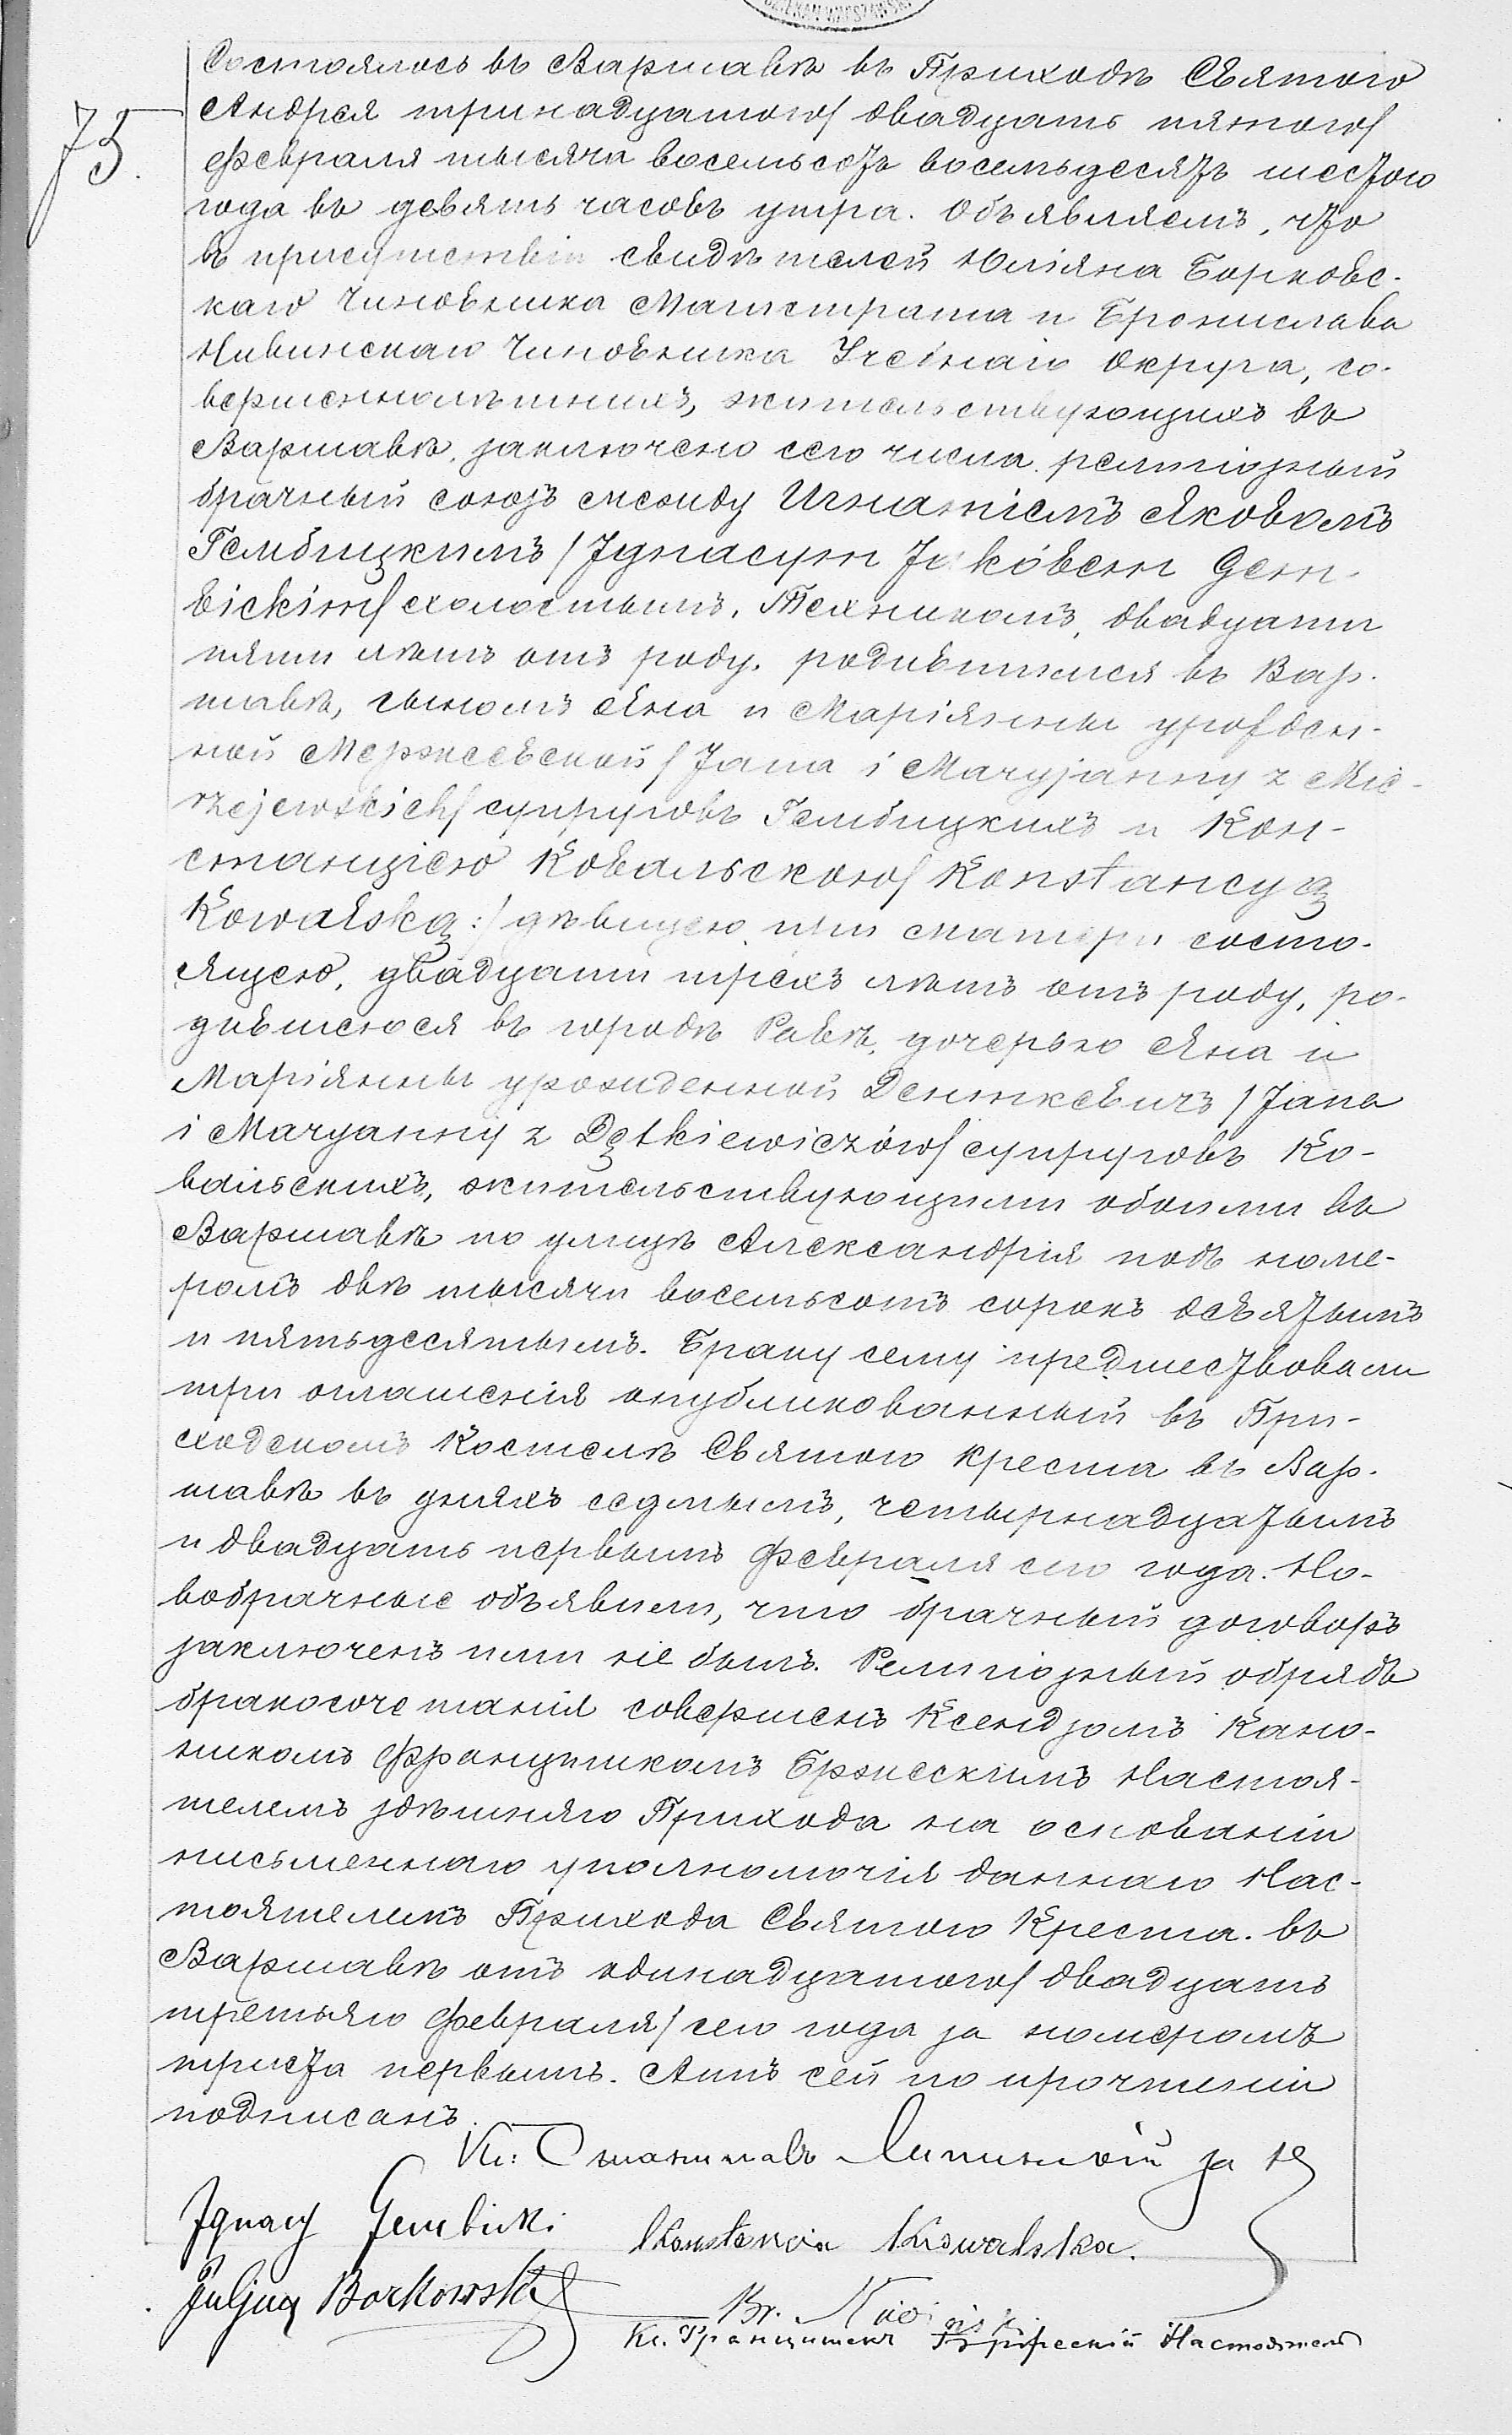 75.
Состоялось въ Варшавѣ въ Приходѣ Святого
Андрея тринадцатого/ двадцать пятого/
Февраля тысяча восемьсотъ восемьдесятъ шестого
года въ девять часовъ утра. Объявляемъ, что
въ присутствіи свидѣтелей Юліяна Борковс-
каго Чиновника Магистрата и Бронислава
Нивинскаго Чиновника Учебнаго Округа, со-
вершеннолѣтнихъ, жительствующихъ въ
Варшавѣ, заключено сего числа религіозный
брачный союзъ между Игнатіемъ Яковомъ
Гембицкимъ /Ignacym Jakóbem Gem-
bickim/ холостымъ, Техникомъ, двадцати
пяти лѣтъ отъ роду, родившимся въ Вар-
шавѣ, сыномъ Яна и Маріянны урожден-
ной Мержеевской /Jana i Maryjanny z Mie-
rzejewskich/ супруговъ Гембицкихъ и Кон-
станціею Ковальскою/ Konstancyą
Kowalską:/ дѣвицею при матери состо-
ящею, двадцати трехъ лѣтъ отъ роду, ро-
дившеюся въ городѣ Равѣ, дочерью Яна и
Маріянны урожденной Денткевичъ /Jana
i Maryanny z Dętkiewiczów/ супруговъ Ко-
вальскихъ, жительствующими обоими въ
Варшавѣ по улицѣ Александрія подъ номе-
ромъ двѣ тысячи восемьсотъ сорокъ девятымъ
и пятьдесятымъ. Браку сему предшествовали
три оглашенія опубликованный въ При-
ходскомъ Костелѣ Святого Креста въ Вар-
шавѣ въ дняхъ седмымъ, четырнадцатымъ
и двадцать первымъ Февраля сего года. Но-
вобрачные объявили, что брачный договоръ
заключенъ ими не былъ. Религіозный обрядъ
бракосочетанія совершенъ Ксендзомъ Кано-
никомъ Францишкомъ Бржескимъ Настоя-
телемъ здѣшняго Прихода на основаніи
письменнаго уполномочія даннаго Нас-
тоятелемъ Прихода Святого Креста въ
Варшавѣ отъ одинадцатого/ двадцать
третьяго Февраля/ сего года за номеромъ
триста первымъ. Актъ сей по прочтеніи
подписанъ.
Кс: Станиславъ Липинскій за Н
Ignacy Gembicki Konstancia Kowalska.
Juljan Borkowski Br. Niwiński
Кс. Францишекъ Бржескій Настоятель